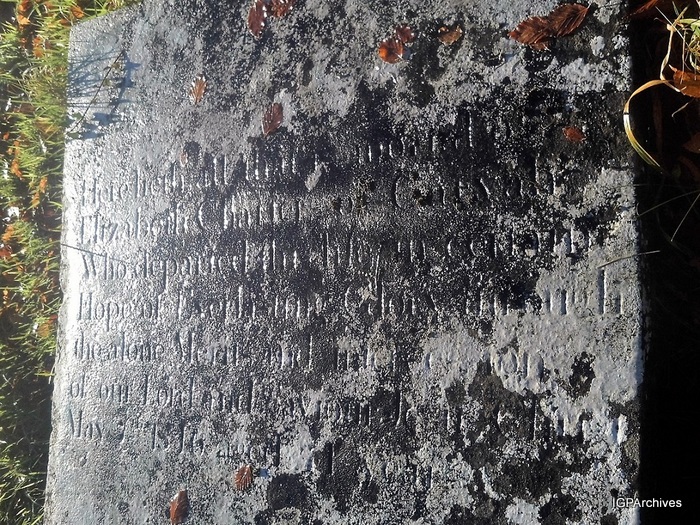 Here lieth all that is mortal
Elizabeth Charter of
Who departed this life in certain
Hope of Everlasting Glory through
the alone Merits and intercession
of our Lord and Saviour Jesus Christ
May 7th aged
IGPArchives